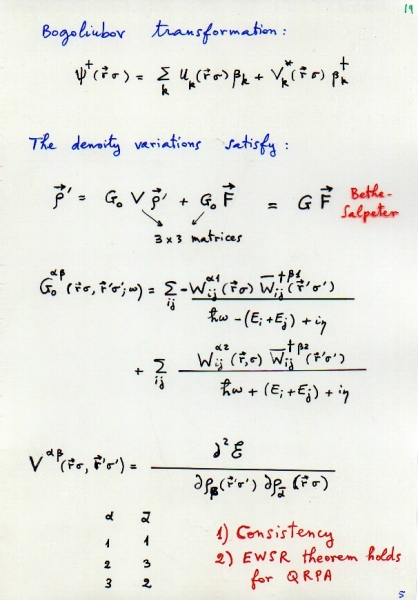 19
Bogoliubov transformation:
ψ†(r⃗σ) = Σ_k U_k(r⃗σ) β_k + V_k*(r⃗σ) β_k†
The density variations satisfy:
ρ⃗' = G₀ V ρ⃗' + G₀ F⃗ = G F⃗ Bethe-
Salpeter
3x3 matrices
G₀^{αβ}(r⃗σ, r⃗'σ';ω) = Σ_{ij} -W_{ij}^{α1}(r⃗σ) W̄_{ij}^{†β1}(r⃗'σ')
ħω-(E_i+E_j) + iη
+ Σ_{ij} W_{ij}^{α2}(r⃗,σ) W̄_{ij}^{†β2}(r⃗'σ')
ħω + (E_i+E_j) + iη
V^{αβ}(r⃗σ, r⃗'σ') = ∂²ℰ
∂ρ_β(r⃗'σ') ∂ρ_ᾱ(r⃗σ)
α ᾱ
1 1 1) Consistency
2 3 2) EWSR theorem holds
3 2 for QRPA
5